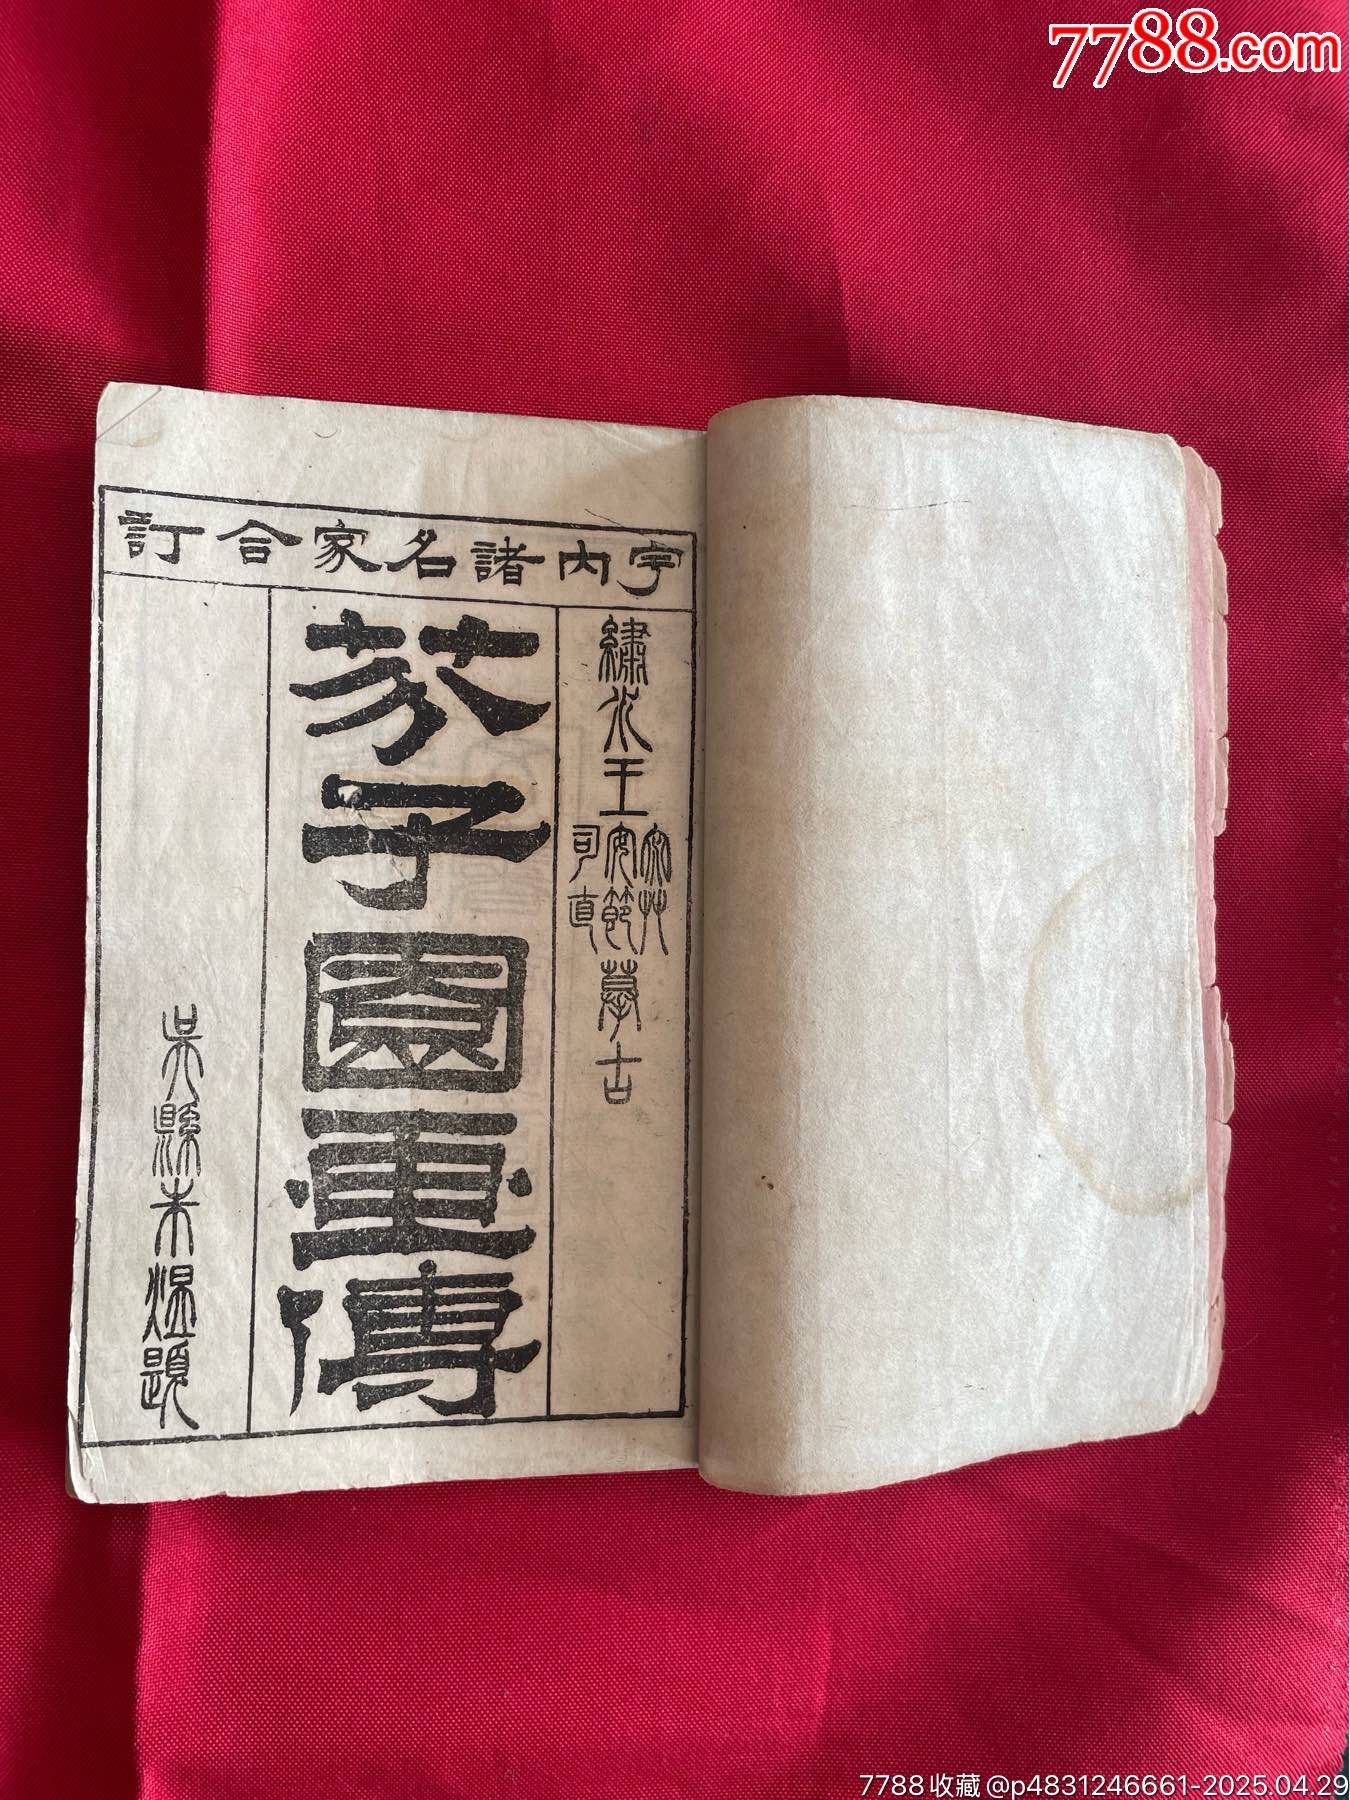 7788.com
宇內諸名家合訂
繡水王宓艸安節司直摹古
芥子園畫傳
吳縣朱煴題
7788收藏@p4831246661-2025.04.29